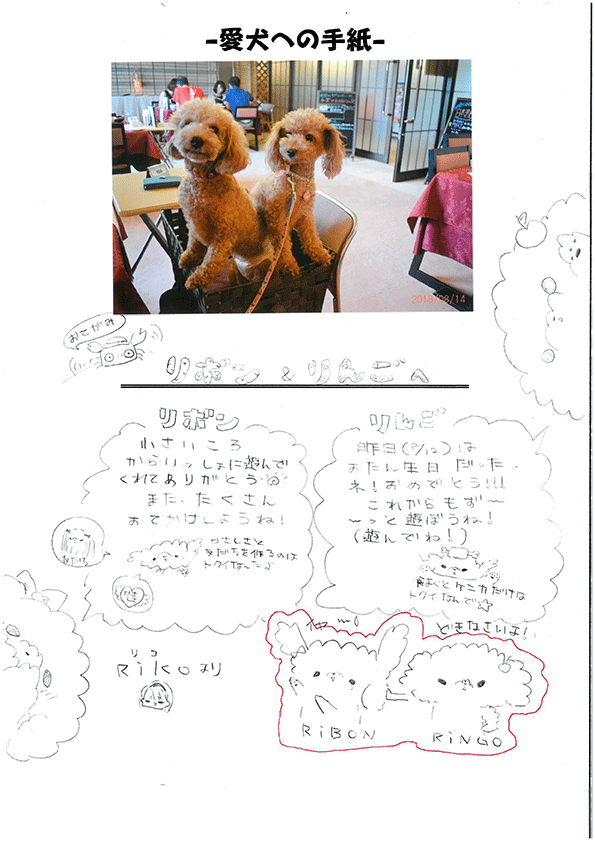 -愛犬への手紙-
2018/08/14
おてがみ
リボン & りんごへ
リボン
小さいころ
からいっしょに遊んで
くれてありがとう
また、たくさん
おでかけしようね!
やさしさと
友だちを作るのは
トクイなんだよ
りんご
昨日(8/12)は
おたん生日だった
ネ!おめでとう!!!
これからもず〜
〜っと遊ぼうね!
(遊んでね!)
食よくとケンカだけは
トクイなんです☆
リコ
Rikoより
どきなさいよ!
RiBON
RiNGO